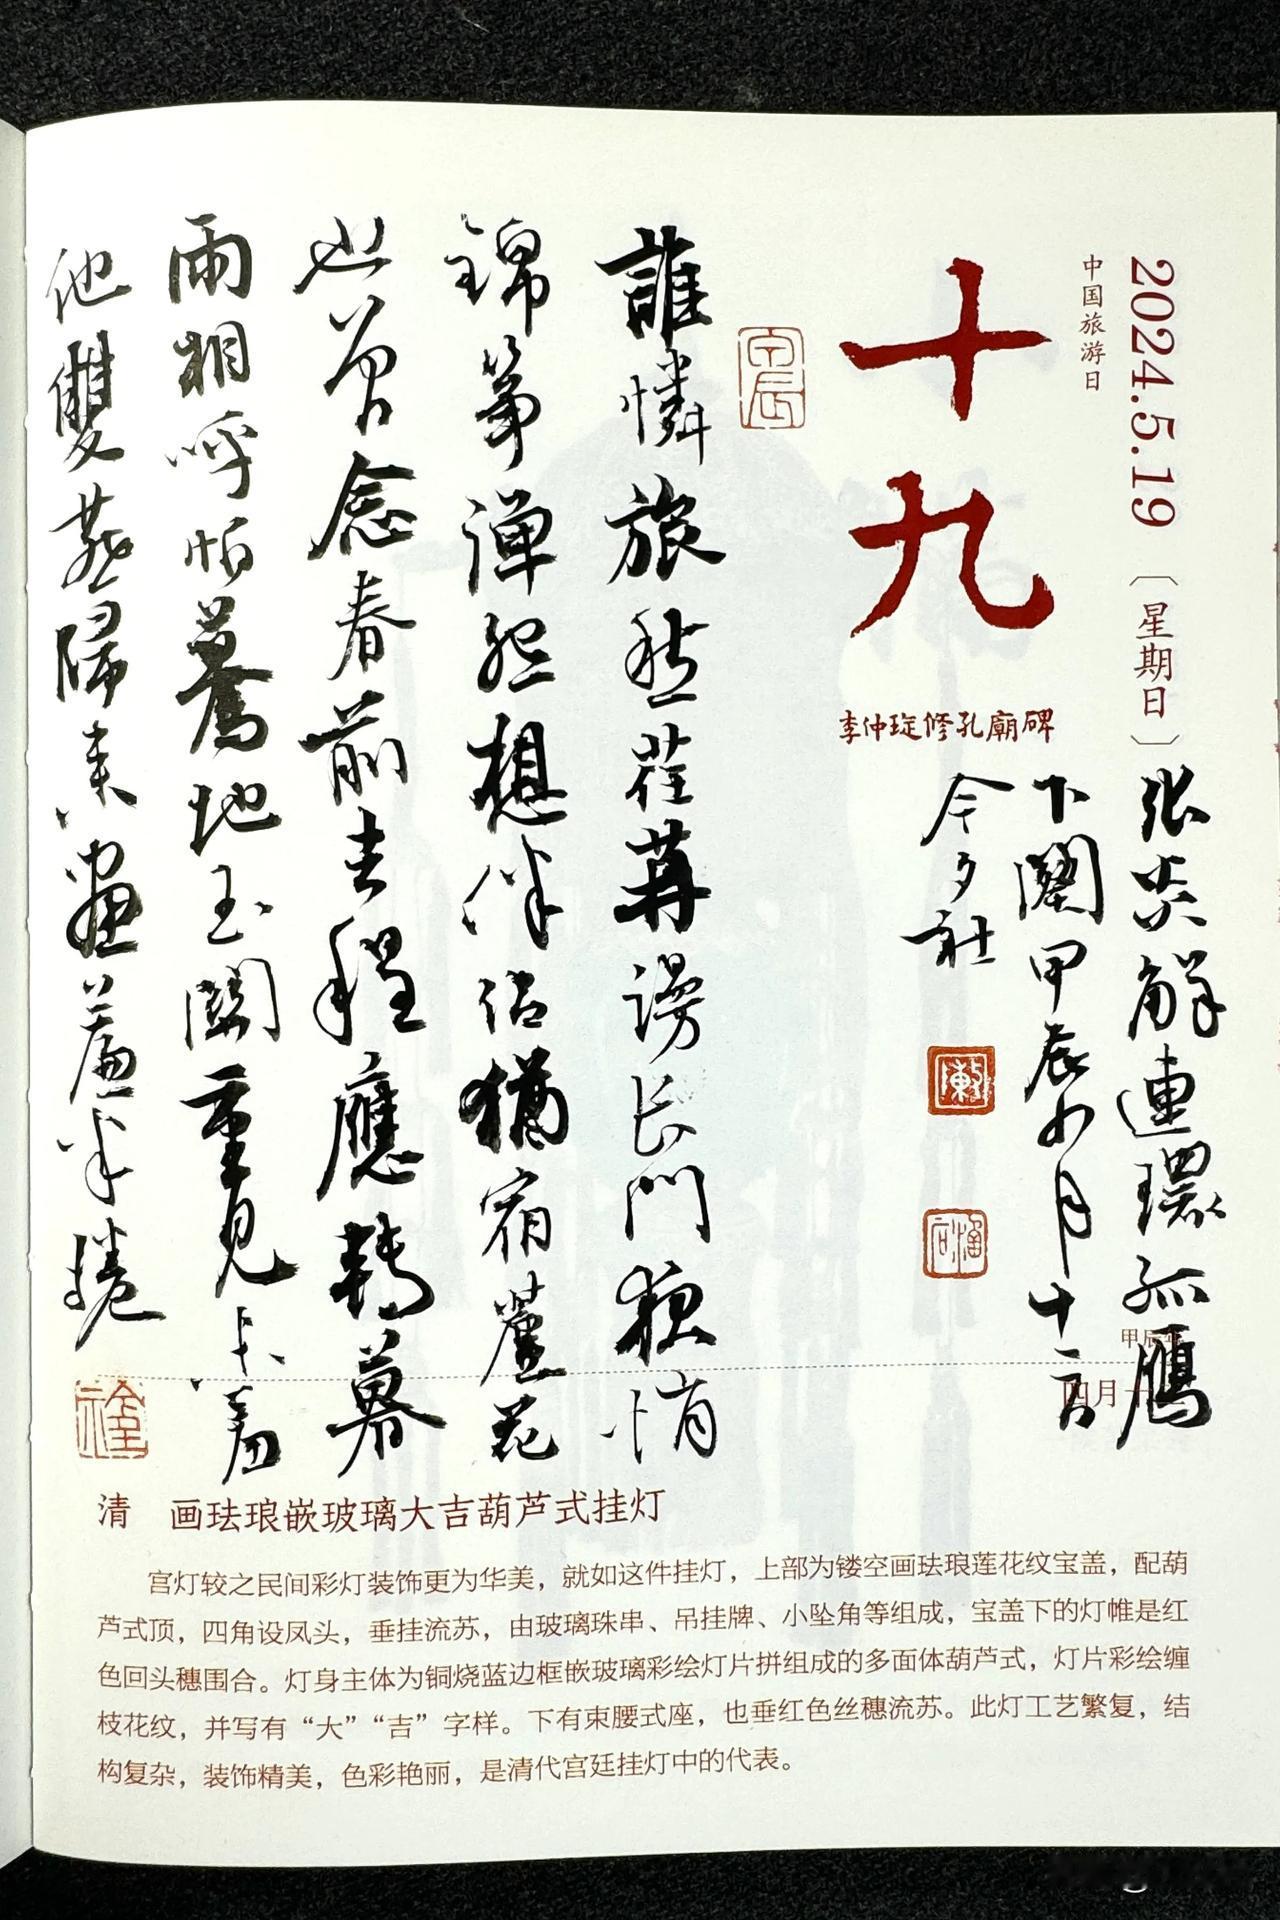 2024.5.19〔星期日〕
中国旅游日
十九
李仲璇修孔廟碑
張炎解連環孤鴈
下闋甲辰四月十二方
今夕社
誰憐旅愁荏苒謾長門夜悄
錦箏彈怨想伴侶猶宿蘆花
也曾念春前去程應轉暮
雨相呼怕驀地玉關重見未羞
他雙燕歸來畫簾半捲
甲辰年
四月十
清 画珐琅嵌玻璃大吉葫芦式挂灯
宫灯较之民间彩灯装饰更为华美，就如这件挂灯，上部为镂空画珐琅莲花纹宝盖，配葫
芦式顶，四角设凤头，垂挂流苏，由玻璃珠串、吊挂牌、小坠角等组成，宝盖下的灯帷是红
色回头穗围合。灯身主体为铜烧蓝边框嵌玻璃彩绘灯片拼组成的多面体葫芦式，灯片彩绘缠
枝花纹，并写有“大”“吉”字样。下有束腰式座，也垂红色丝穗流苏。此灯工艺繁复，结
构复杂，装饰精美，色彩艳丽，是清代宫廷挂灯中的代表。